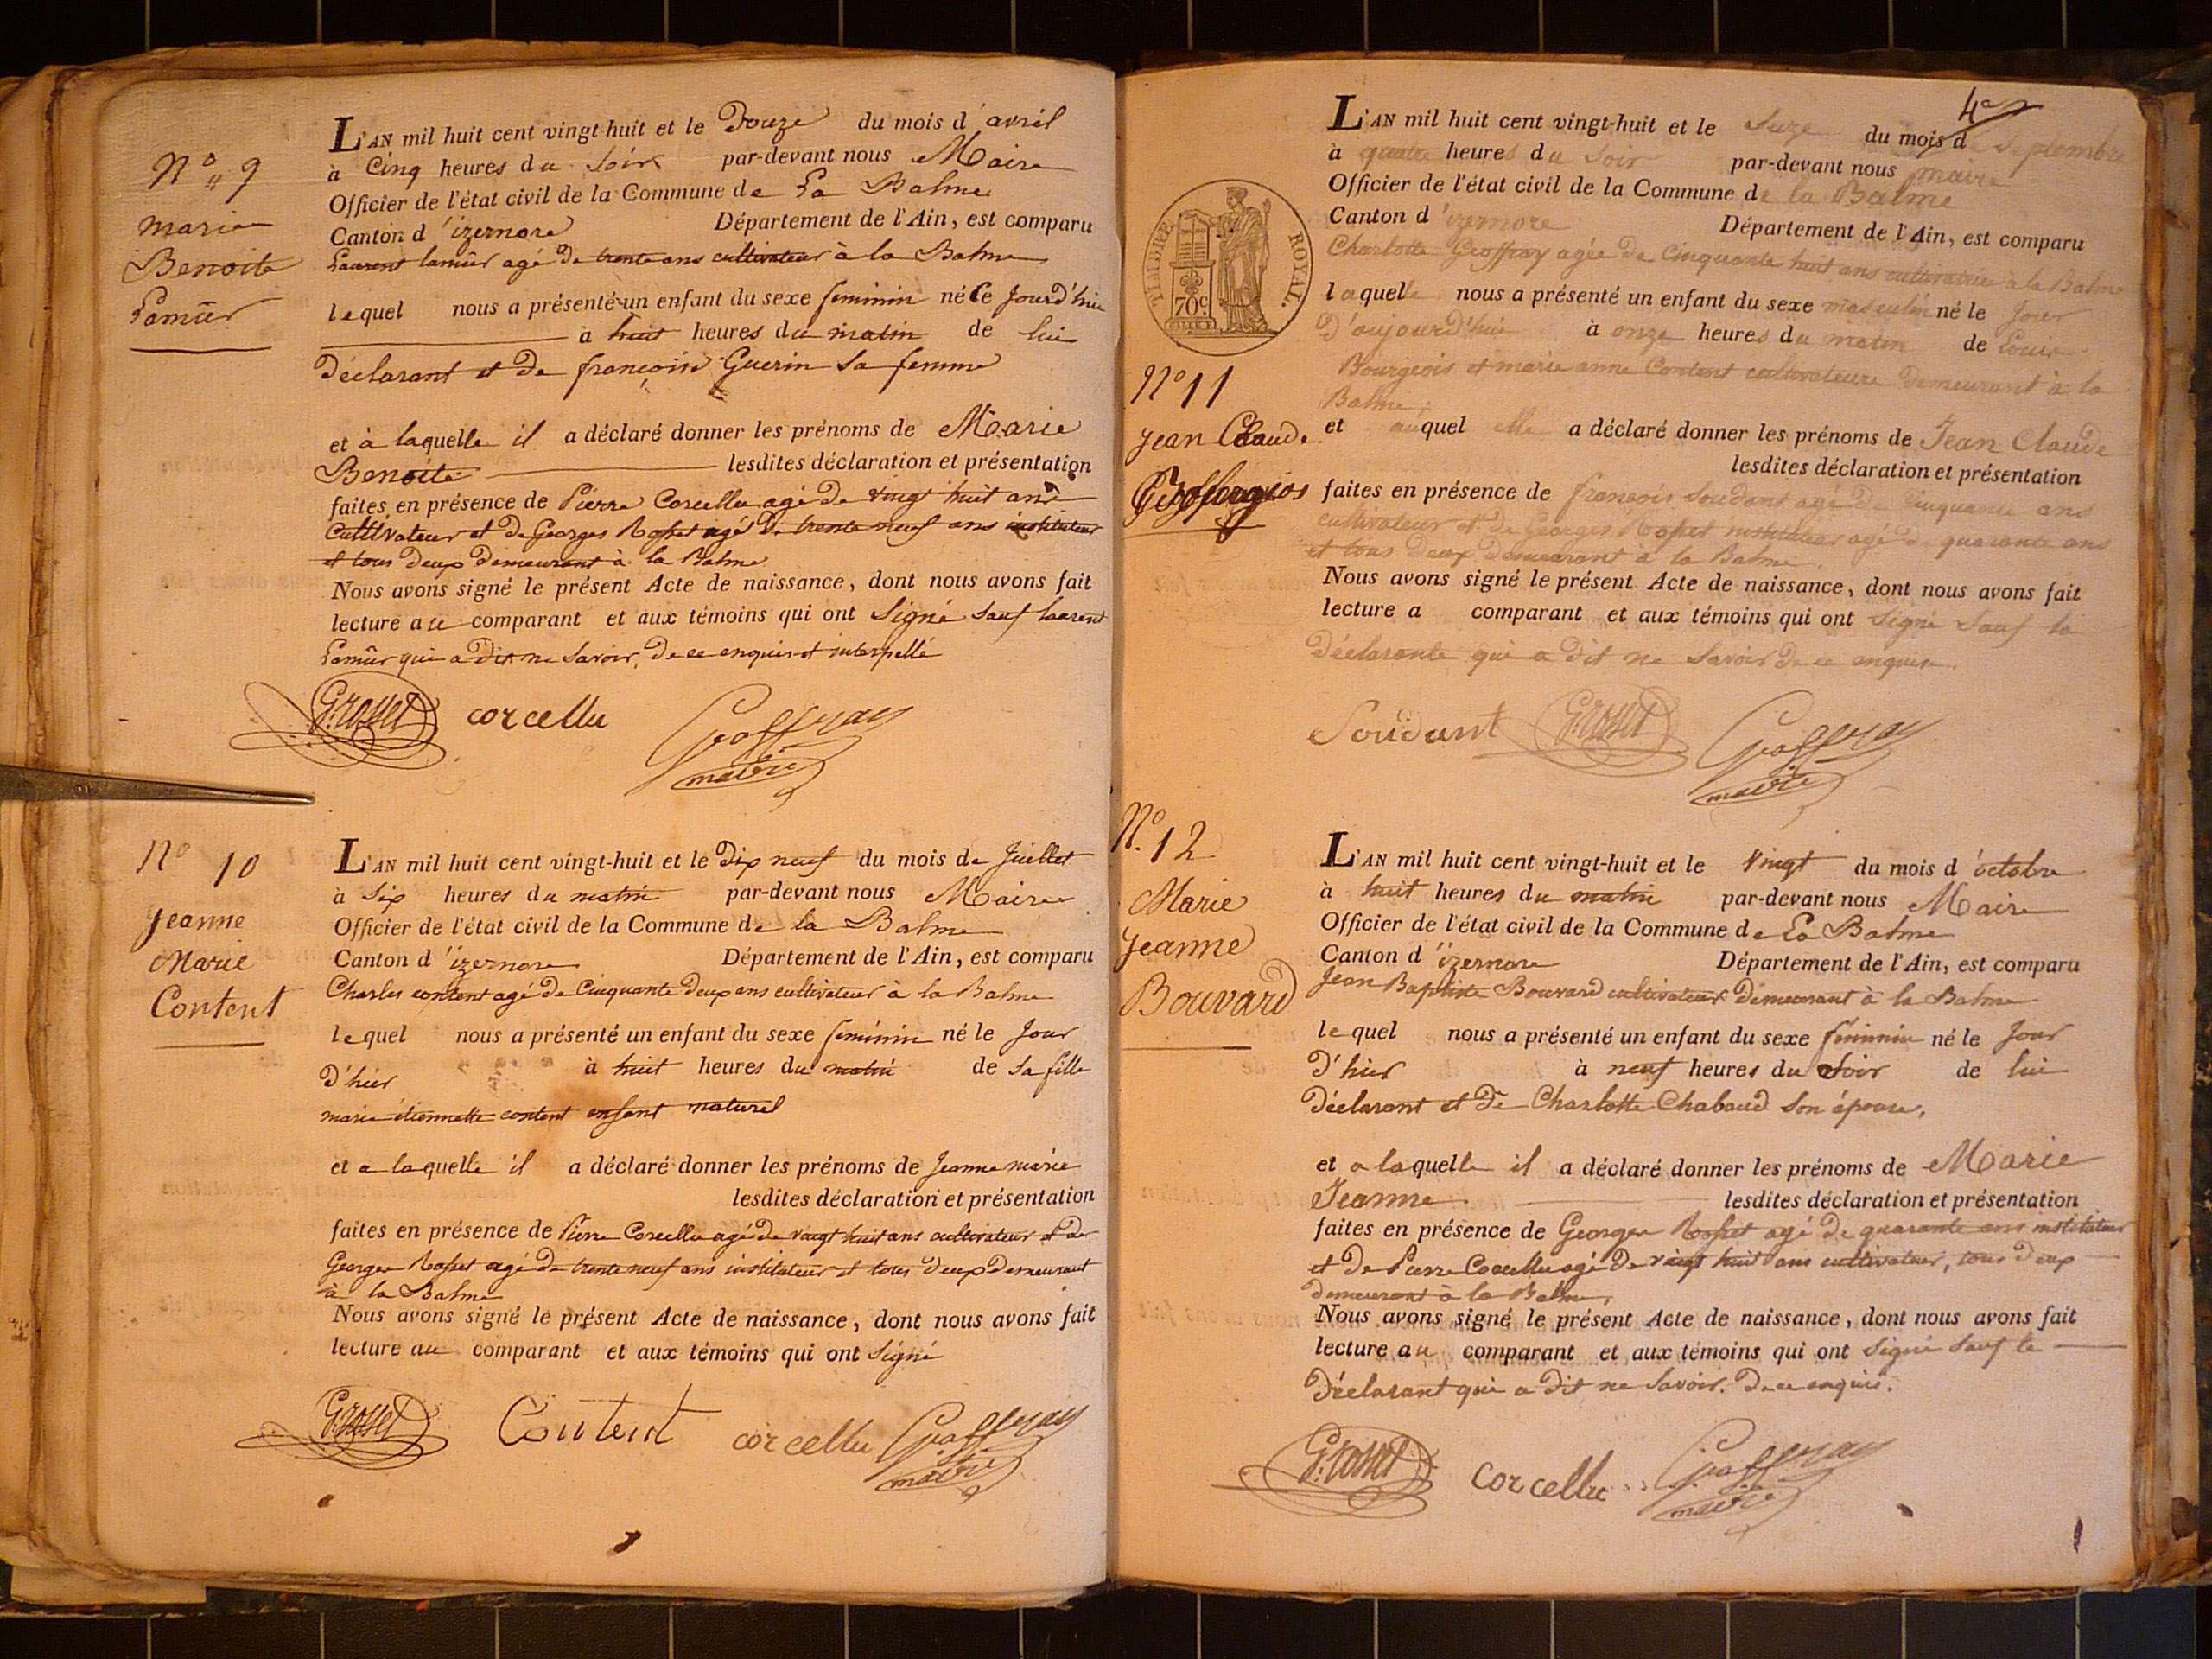 N° 9
Marie
Benoite
Lamûr
L'AN mil huit cent vingt-huit et le Douze du mois d'avril
à Cinq heures du Soir par-devant nous Maire
Officier de l'état civil de la Commune de La Balme
Canton d'izernore Département de l'Ain, est comparu
Laurent lamûr agé de trente ans cultivateur à la Balme
lequel nous a présenté un enfant du sexe feminin né Ce Jourd'hui
à huit heures du matin de lui
Déclarant et de françoise Guerin Sa femme
et à laquelle il a déclaré donner les prénoms de Marie
Benoite lesdites déclaration et présentation
faites en présence de Pierre Corcellu agé de vingt huit ans
Cultivateur et de Georges Rosset agé de trente neuf ans instituteur
et tous deux Demeurant à la Balme
Nous avons signé le présent Acte de naissance, dont nous avons fait
lecture au comparant et aux témoins qui ont Signé Sauf laurent
Lamûr qui a dit ne Savoir, De ce enquis et interpellé
G. rosset corcellu Geoffray
maire
N° 10
Jeanne
Marie
Content
L'AN mil huit cent vingt-huit et le Dix neuf du mois de Juillet
à Six heures du matin par-devant nous Maire
Officier de l'état civil de la Commune de la Balme
Canton d'izernore Département de l'Ain, est comparu
Charles content agé de Cinquante Deux ans cultivateur à la Balme
lequel nous a présenté un enfant du sexe feminin né le Jour
D'hier à huit heures du matin de Sa fille
marie étiennette content enfant naturel
et a laquelle il a déclaré donner les prénoms de Jeanne marie
lesdites déclaration et présentation
faites en présence de Pierre Corcellu agé de vingt huit ans cultivateur et de
Georges Rosset agé de trente neuf ans instituteur et tous Deux Demeurant
à la Balme
Nous avons signé le présent Acte de naissance, dont nous avons fait
lecture au comparant et aux témoins qui ont Signé
G. rosset Content corcellu Geoffray
maire
4e
TIMBRE ROYAL.
70c.
N° 11
Jean Claude
Bourgeois
L'AN mil huit cent vingt-huit et le Suze du mois de Septembre
à quatre heures du Soir par-devant nous maire
Officier de l'état civil de la Commune de la Balme
Canton d'izernore Département de l'Ain, est comparu
Charlotte Geoffray agée de Cinquante huit ans cultivatrice à la Balme
laquelle nous a présenté un enfant du sexe masculin né le Jour
D'aujourd'hui à onze heures du matin de Louis
Bourgeois et marie anne Content cultivateurs Demeurant à la
Balme,
et auquel elle a déclaré donner les prénoms de Jean Claude
lesdites déclaration et présentation
faites en présence de françois Soudant agé de Cinquante ans
cultivateur et de Georges Rosset instituteur agé de quarante ans
et tous Deux Demeurant à la Balme
Nous avons signé le présent Acte de naissance, dont nous avons fait
lecture a comparant et aux témoins qui ont Signé Sauf la
Déclarante qui a dit ne Savoir De ce enquise
Soudant G. rosset Geoffray
maire
N° 12
Marie
Jeanne
Bouvard
L'AN mil huit cent vingt-huit et le Vingt du mois d'octobre
à huit heures du matin par-devant nous Maire
Officier de l'état civil de la Commune de La Balme
Canton d'izernore Département de l'Ain, est comparu
Jean Baptiste Bouvard cultivateur Demeurant à la Balme
lequel nous a présenté un enfant du sexe féminin né le Jour
D'hier à neuf heures du Soir de lui
Déclarant et De Charlotte Chabaud Son épouse,
et a laquelle il a déclaré donner les prénoms de Marie
Jeanne lesdites déclaration et présentation
faites en présence de Georges Rosset agé de quarante ans instituteur
et de Pierre Corcellu agé De vingt huit ans cultivateur, tous Deux
Demeurant à la Balme,
Nous avons signé le présent Acte de naissance, dont nous avons fait
lecture au comparant et aux témoins qui ont Signé Sauf le
Déclarant qui a Dit ne Savoir. De ce enquis.
G. rosset corcellu Geoffray
maire